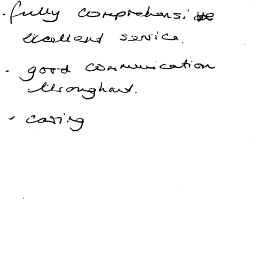 · fully comprehensive
excellent service.
· good communication
throughout.
· caring